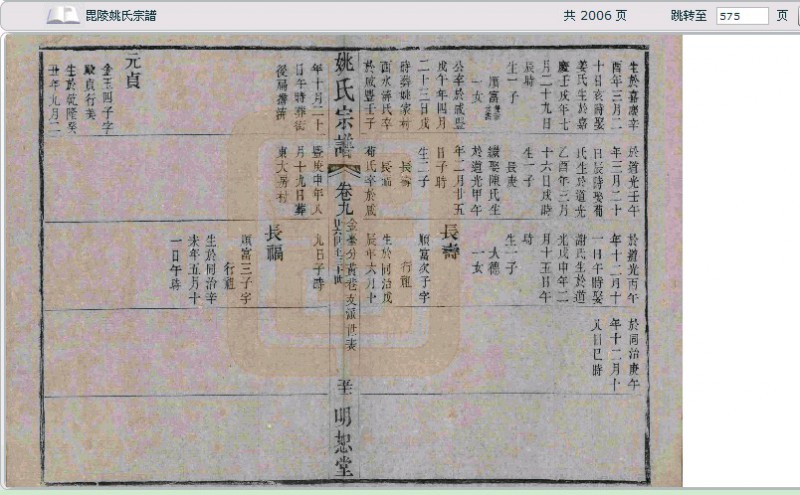 毘陵姚氏宗譜
共 2006 页
跳转至 575 页
生於嘉慶辛
酉年三月二
十日亥時娶
姜氏生於嘉
慶壬戌年七
月二十九日
辰時
生一子
順富
一女
公卒於咸豐
戊午年四月
二十三日戌
時葬姚家村
西水溝氏卒
於咸豐壬子
年十月二十
日午時葬街
後楊灣濱
元貞
金玉四子字
殿貞行美
生於乾隆癸
丑年九月二
於道光壬午
年三月二十
日辰時娶荀
氏生於道光
乙酉年三月
十六日戌時
生一子
長庚
續娶陳氏生
於道光甲午
年二月廿五
日子時
生二子
長壽
長福
荀氏卒於咸
豐庚申年八
月十九日葬
東大房村
於道光丙午
年十二月十
一日午時娶
謝氏生於道
光戊申年二
月十五日午
時
生一子
大德
一女
長壽
順富次子字
行
生於同治戊
辰年六月十
九日子時
長福
順富三子字
行
生於同治辛
未年五月十
一日午時
於同治庚午
年十二月十
八日巳時
姚氏宗譜
卷九
金
分黃巷支派世表
明恕堂